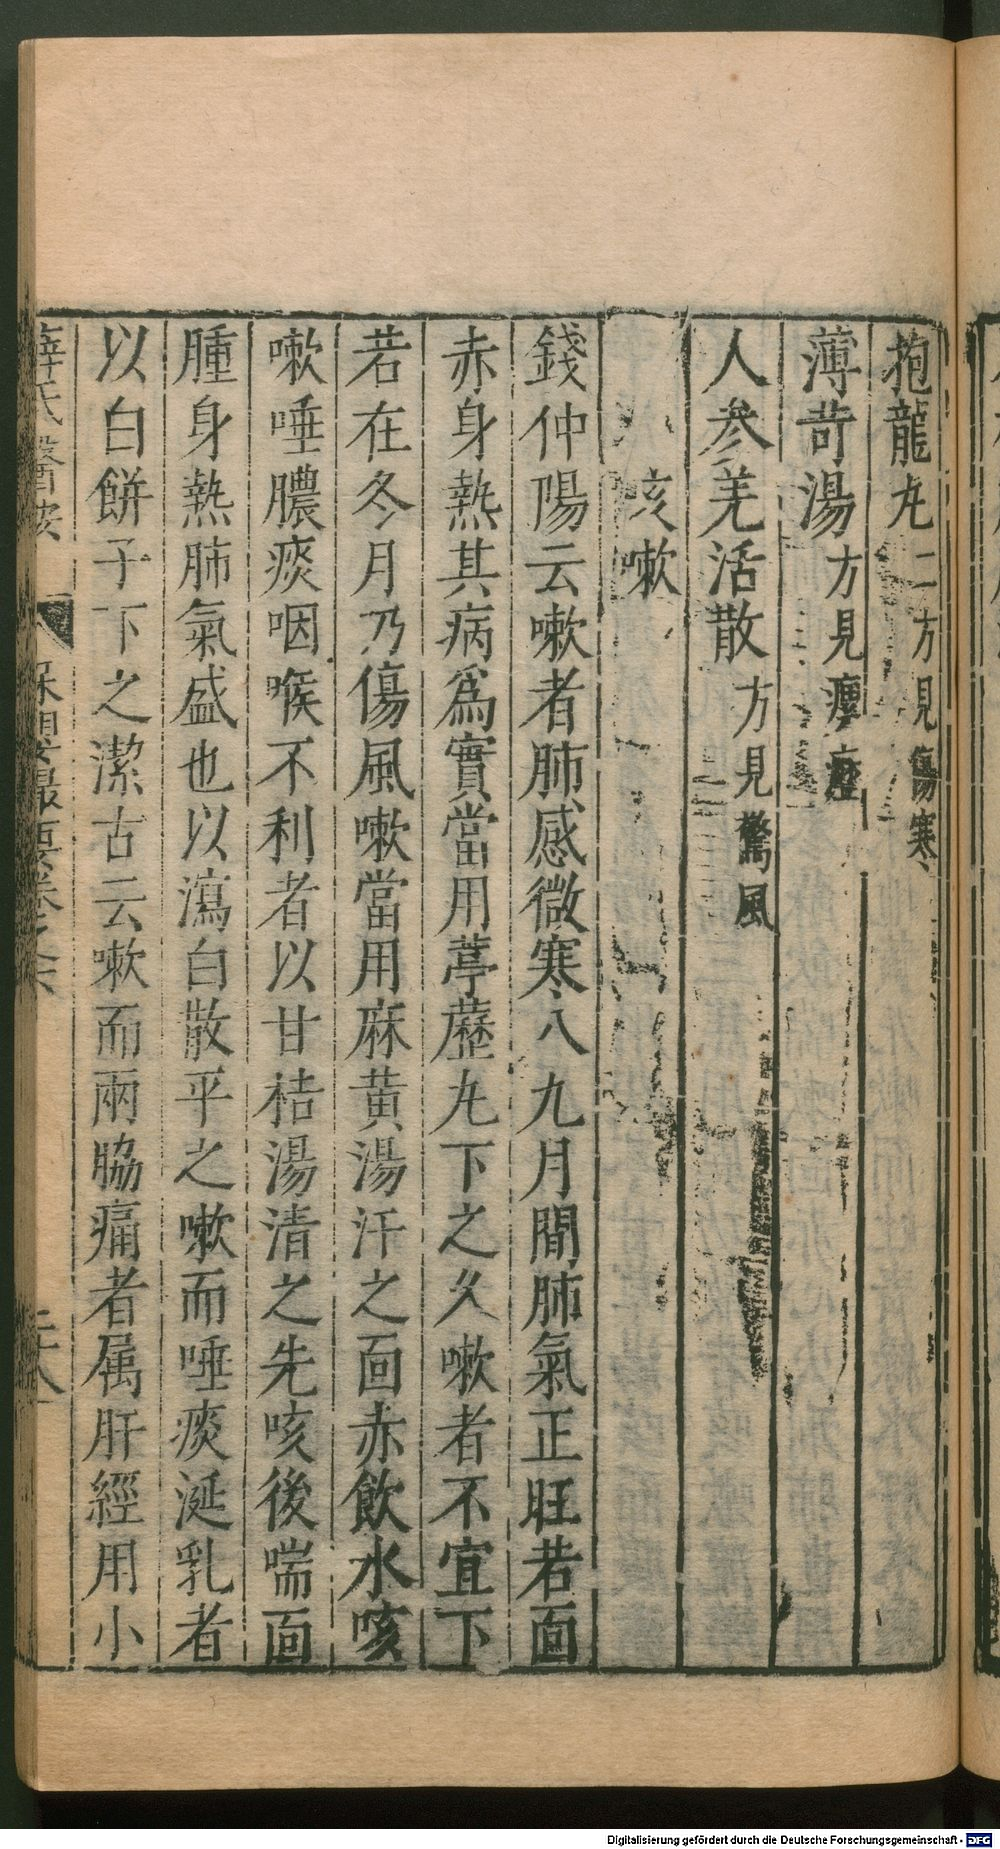 抱龍丸二方見傷寒
薄荷湯方見癭癧
人參羌活散方見驚風
咳嗽
錢仲陽云嗽者肺感微寒八九月間肺氣正旺若面
赤身熱其病爲實當用葶藶丸下之久嗽者不宜下
若在冬月乃傷風嗽當用麻黃湯汗之面赤飲水咳
嗽唾膿痰咽喉不利者以甘桔湯清之先咳後喘面
腫身熱肺氣盛也以瀉白散平之嗽而唾痰涎乳者
以白餅子下之潔古云嗽而兩脇痛者属肝經用小
薛氏醫按
保嬰撮要卷之六
二十八
Digitalisierung gefördert durch die Deutsche Forschungsgemeinschaft - DFG